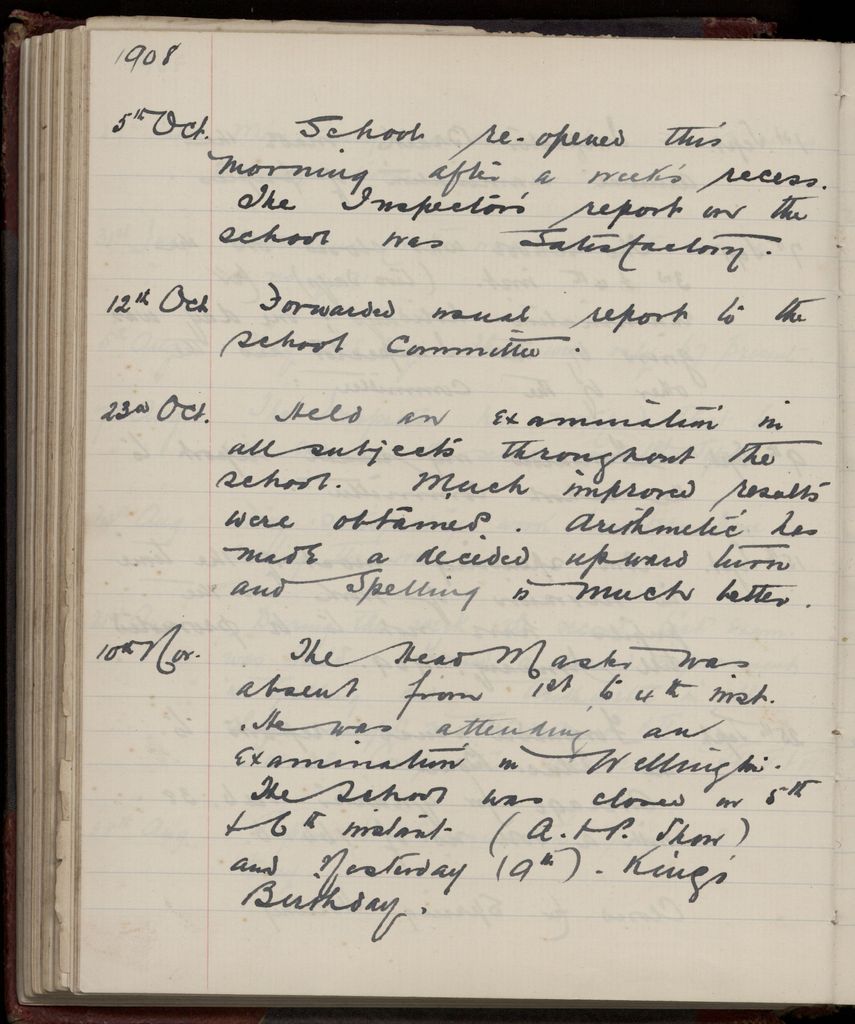 1908
5th Oct. School re-opened this
morning after a week's recess.
The Inspector's report on the
school was Satisfactory.
12th Oct Forwarded usual report to the
School Committee.
23rd Oct. Held an Examination in
all subjects throughout the
school. Much improved results
were obtained. Arithmetic has
made a decided upward turn
and Spelling is much better.
10th Nov. The Head Master was
absent from 1st to 4th inst.
He was attending an
Examination in Wellington.
The School was closed on 5th
& 6th instant (A. & P. Show)
and Yesterday (9th). King's
Birthday.